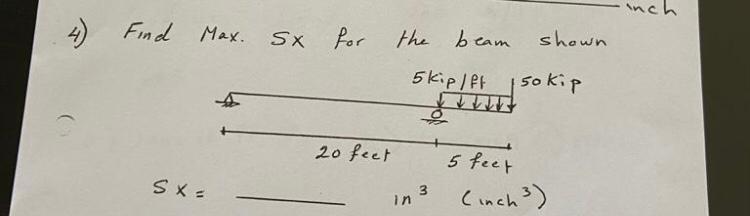 inch
4) Find Max. Sx for the beam shown
5kip/ft 50 kip
20 feet 5 feet
Sx = in³ (inch³)